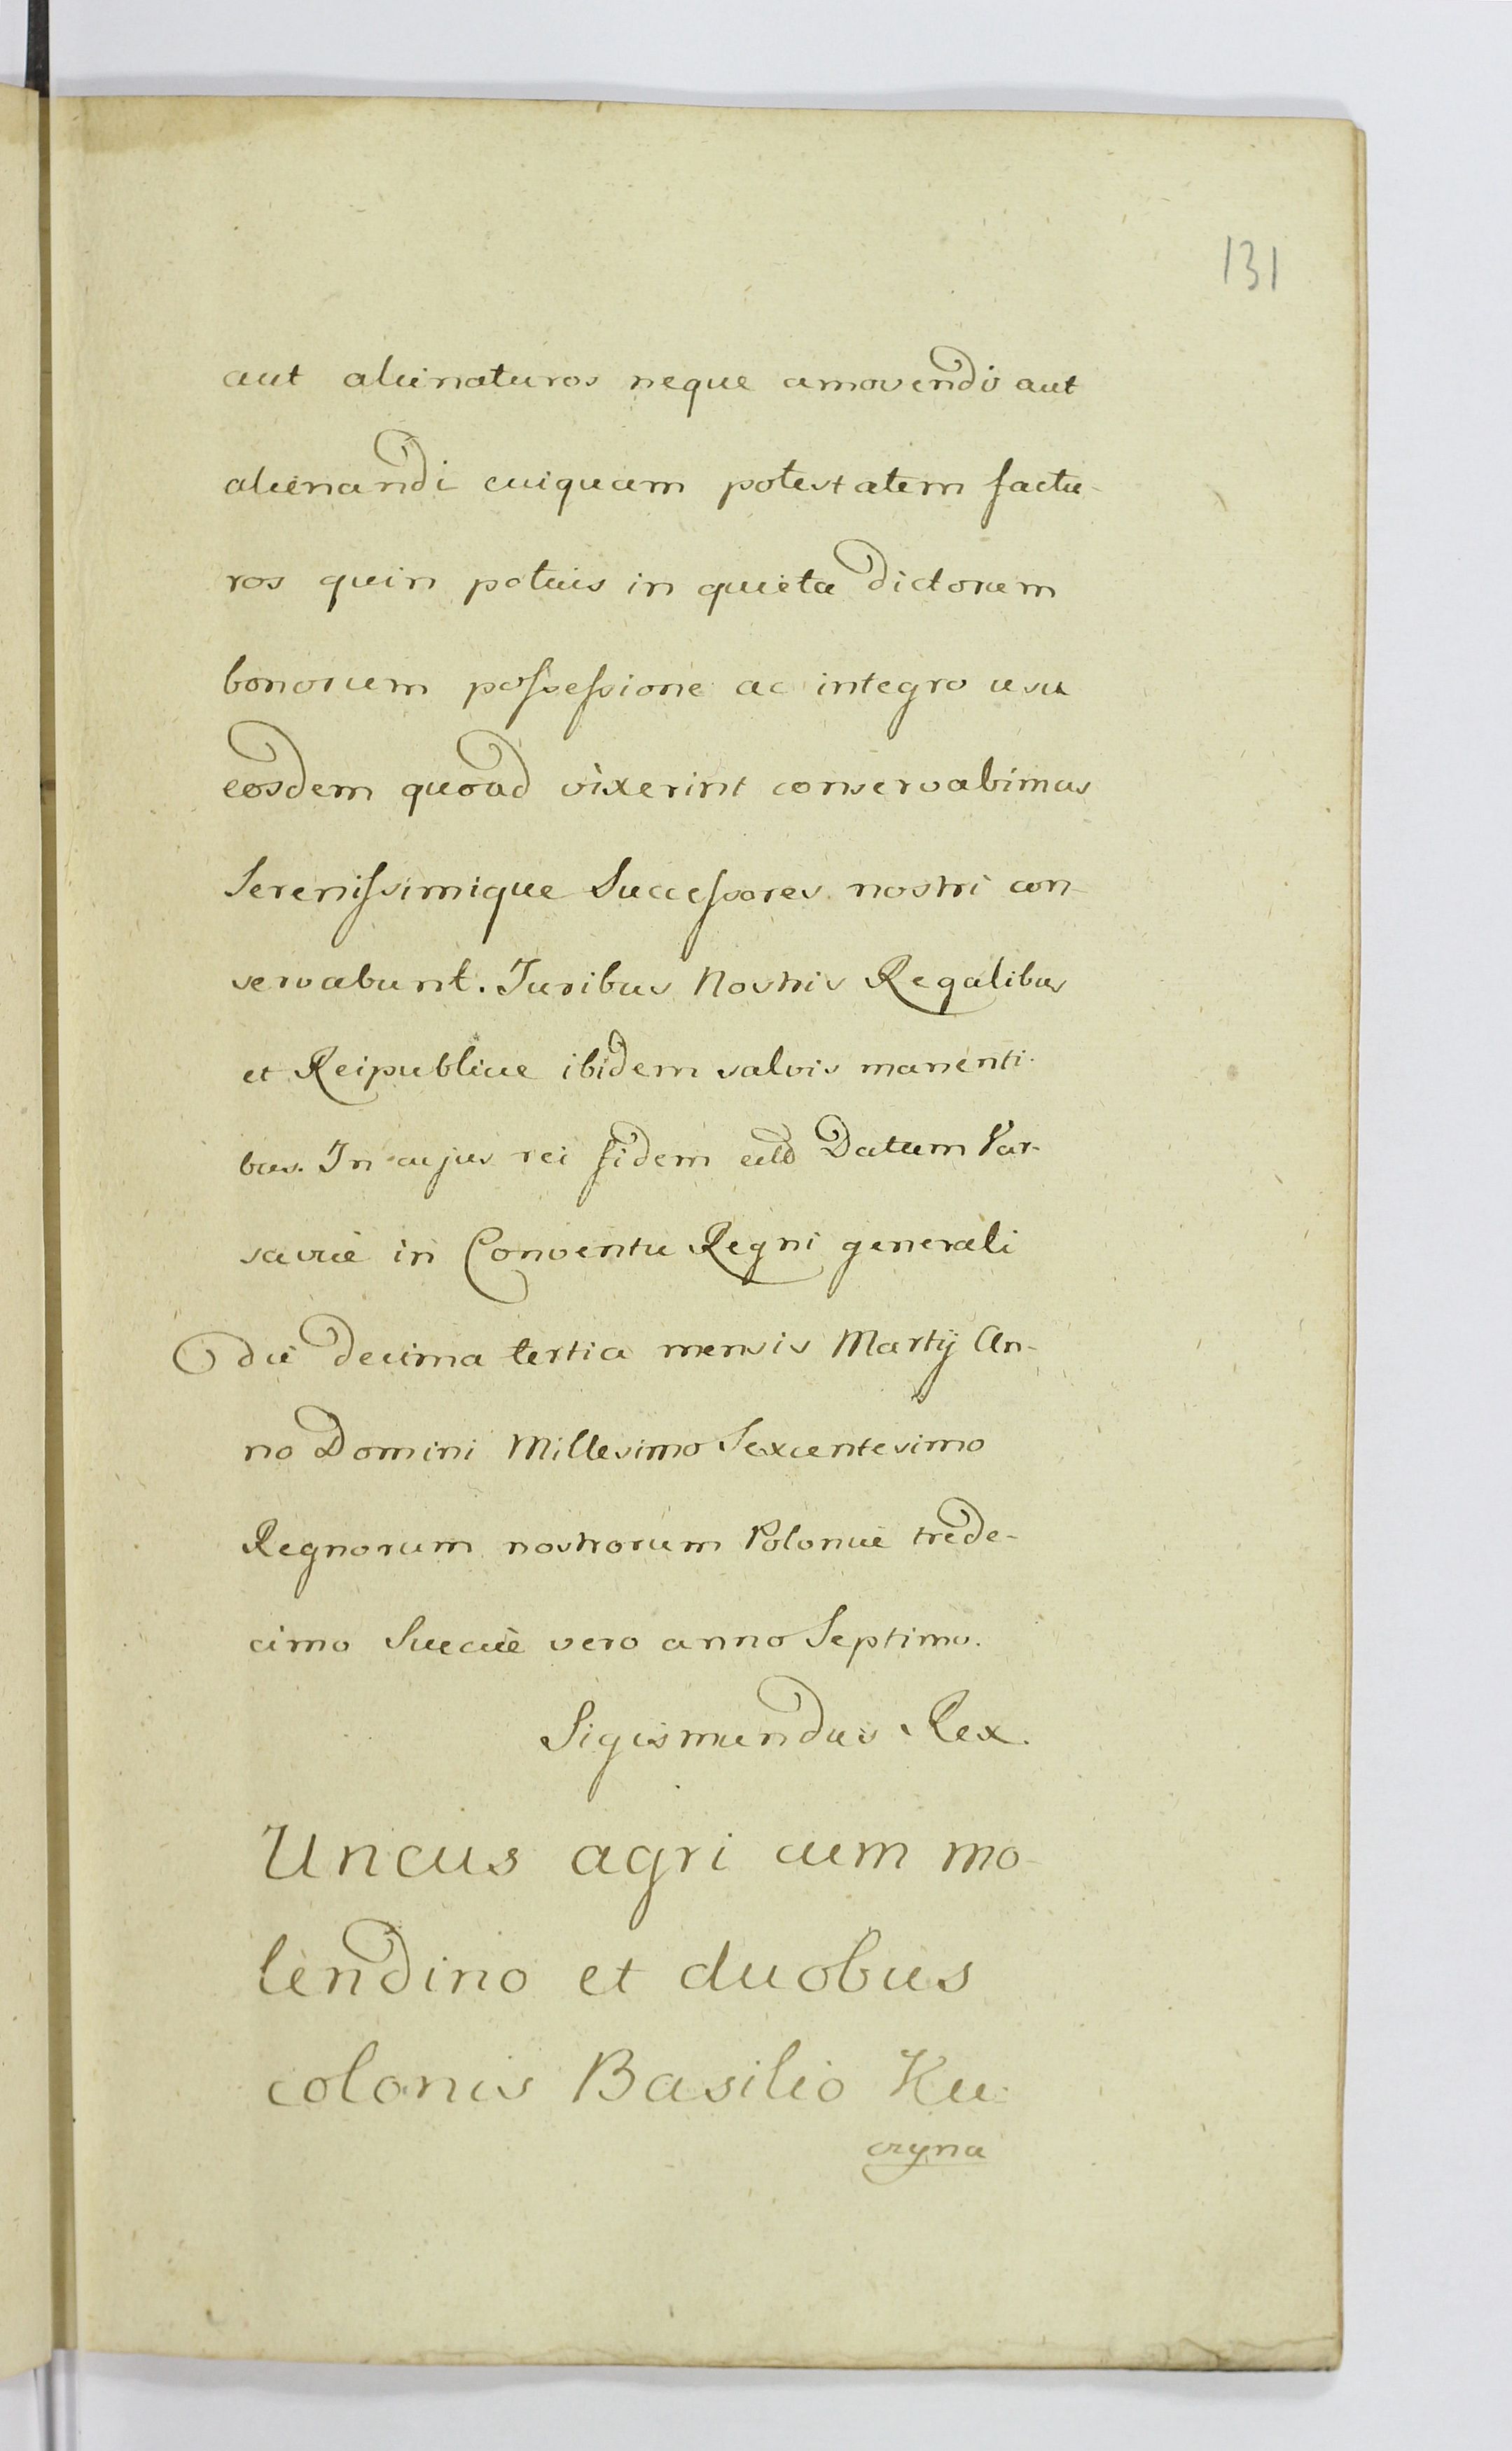 131
aut alienaturos neque amovendi aut
alienandi cuiquam potestatem factu-
ros quin potius in quieta dictorum
bonorum possessione ac integro usu
eosdem quoad vixerint conservabimus
Serenissimique Successores nostri con-
servabunt. Juribus Nostris Regalibus
et Reipublicae ibidem salvis manenti-
bus. In cujus rei fidem Datum Var-
saviae in Conventu Regni generali
die decima tertia mensis Martij An-
no Domini Millesimo Sexcentesimo
Regnorum nostrorum Poloniae trede-
cimo Sueciae vero anno Septimo.
Sigismundus Rex.
Uncus agri cum mo-
lendino et duobus
colonis Basilio Ku-
czyna